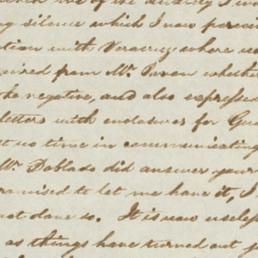 me of the
silence which I now perceive
tion with Veracruz where
uired from Mr. whether
the negative, and also expressed
letters with enclosures for
no time in communicating
Mr. Doblado did answer your
promised to let me have it, I
not done so. It is now useless
as things have turned out